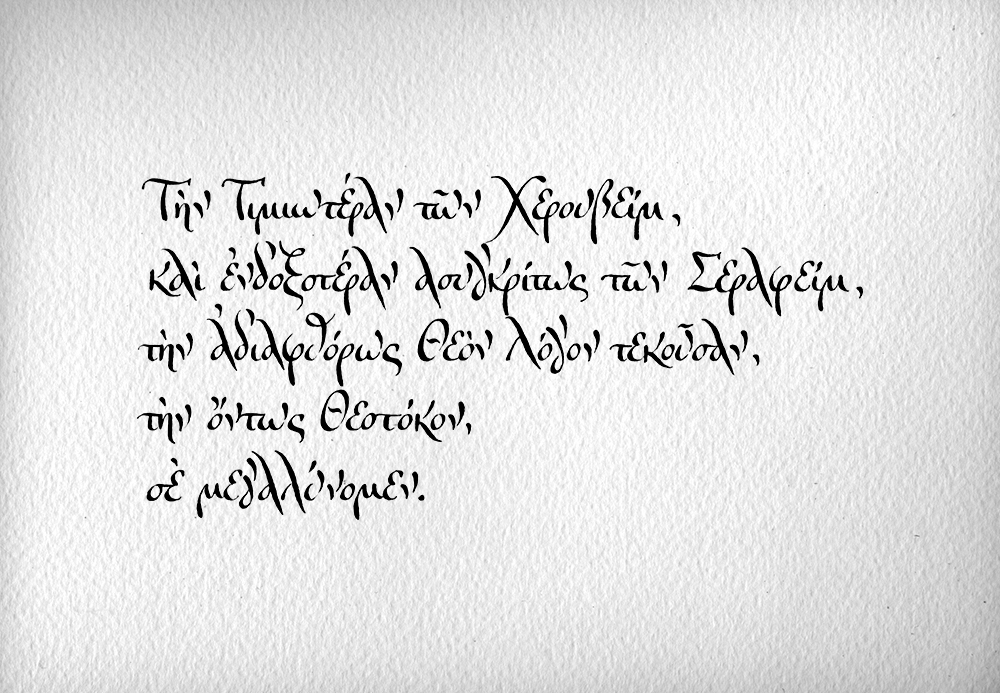 Τὴν Τιμιωτέραν τῶν Χερουβείμ,
καὶ ἐνδοξοτέραν ἀσυγκρίτως τῶν Σεραφείμ,
τὴν ἀδιαφθόρως Θεὸν Λόγον τεκοῦσαν,
τὴν ὄντως Θεοτόκον,
σὲ μεγαλύνομεν.